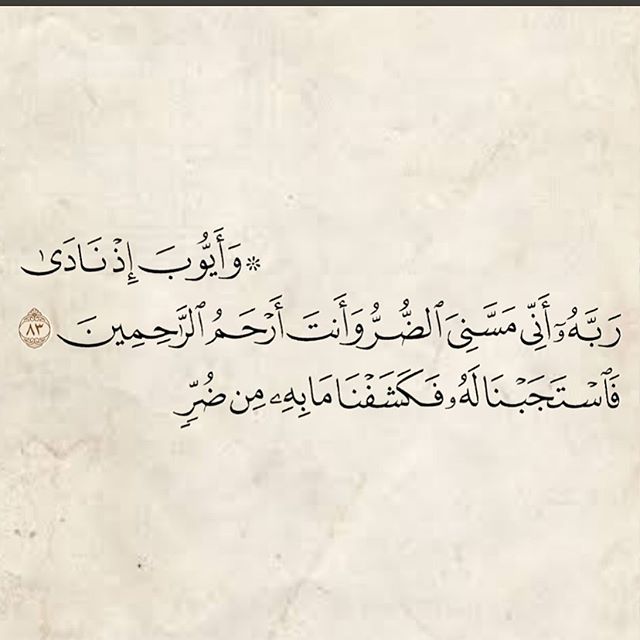 * وَأَيُّوبَ إِذْ نَادَىٰ
رَبَّهُۥٓ أَنِّى مَسَّنِىَ ٱلضُّرُّ وَأَنتَ أَرْحَمُ ٱلرَّٰحِمِينَ ٨٣
فَٱسْتَجَبْنَا لَهُۥ فَكَشَفْنَا مَا بِهِۦ مِن ضُرٍّ